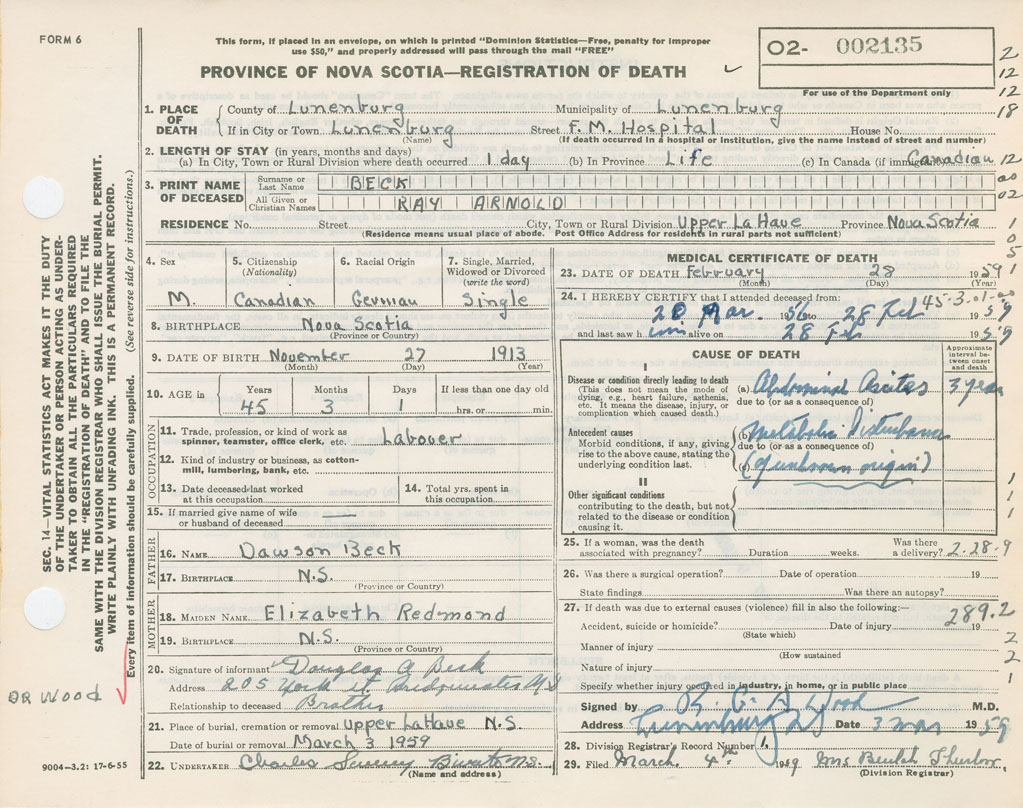 FORM 6
This form, if placed in an envelope, on which is printed "Dominion Statistics—Free, penalty for improper
use $50," and properly addressed will pass through the mail "FREE"
PROVINCE OF NOVA SCOTIA—REGISTRATION OF DEATH
O2- 002135
For use of the Department only
2
12
12
18
12
00
02
1
0
5
1
SEC. 14—VITAL STATISTICS ACT MAKES IT THE DUTY
OF THE UNDERTAKER OR PERSON ACTING AS UNDER-
TAKER TO OBTAIN ALL THE PARTICULARS REQUIRED
IN THE "REGISTRATION OF DEATH" AND TO FILE THE
SAME WITH THE DIVISION REGISTRAR WHO SHALL ISSUE THE BURIAL PERMIT.
WRITE PLAINLY WITH UNFADING INK. THIS IS A PERMANENT RECORD.
Every item of information should be carefully supplied. (See reverse side for instructions.)
DR WOOD
9004-3.2: 17-6-55
1. PLACE OF DEATH
County of Lunenburg Municipality of Lunenburg
If in City or Town Lunenburg Street F. M. Hospital House No.
(Name) (If death occurred in a hospital or institution, give the name instead of street and number)
2. LENGTH OF STAY (in years, months and days)
(a) In City, Town or Rural Division where death occurred 1 day (b) In Province Life (c) In Canada (if immigrant) Canadian
3. PRINT NAME OF DECEASED
Surname or Last Name BECK
All Given or Christian Names RAY ARNOLD
RESIDENCE No. Street City, Town or Rural Division Upper La Have Province Nova Scotia
(Residence means usual place of abode. Post Office Address for residents in rural parts not sufficient)
4. Sex
M.
5. Citizenship (Nationality)
Canadian
6. Racial Origin
German
7. Single, Married, Widowed or Divorced (write the word)
Single
8. BIRTHPLACE Nova Scotia
(Province or Country)
9. DATE OF BIRTH November 27 1913
(Month) (Day) (Year)
10. AGE in
Years 45
Months 3
Days 1
If less than one day old
hrs. or min.
OCCUPATION
11. Trade, profession, or kind of work as spinner, teamster, office clerk, etc. Labourer
12. Kind of industry or business, as cotton-mill, lumbering, bank, etc.
13. Date deceased last worked at this occupation
14. Total yrs. spent in this occupation
15. If married give name of wife or husband of deceased —
FATHER
16. NAME Dawson Beck
17. BIRTHPLACE N.S.
(Province or Country)
MOTHER
18. MAIDEN NAME Elizabeth Redmond
19. BIRTHPLACE N.S.
(Province or Country)
20. Signature of informant Douglas A Beck
Address 205 York st Bridgewater N S
Relationship to deceased Brother
21. Place of burial, cremation or removal Upper LaHave N.S.
Date of burial or removal March 3 1959
22. UNDERTAKER Charles
(Name and address)
MEDICAL CERTIFICATE OF DEATH
23. DATE OF DEATH February 28 1959
(Month) (Day) (Year)
24. I HEREBY CERTIFY that I attended deceased from:
45-3.01-00
20 Mar. 1956 to 28 Feb 1959
and last saw him alive on 28 Feb 1959
CAUSE OF DEATH
Approximate interval between onset and death
I
Disease or condition directly leading to death
(This does not mean the mode of dying, e.g., heart failure, asthenia, etc. It means the disease, injury, or complication which caused death.)
(a) Abdominal Ascites 3 years
due to (or as a consequence of)
Antecedent causes
Morbid conditions, if any, giving rise to the above cause, stating the underlying condition last.
(b) Metabolic Disturbance
due to (or as a consequence of)
(c) (of unknown origin)
II
Other significant conditions
contributing to the death, but not related to the disease or condition causing it.
1
1
1
25. If a woman, was the death associated with pregnancy? Duration weeks. Was there a delivery? 2-28-9
26. Was there a surgical operation? Date of operation 19
State findings Was there an autopsy?
27. If death was due to external causes (violence) fill in also the following:—
289.2
Accident, suicide or homicide? Date of injury 19
(State which)
2
Manner of injury
(How sustained
2
Nature of injury
Specify whether injury occurred in industry, in home, or in public place
1
Signed by R. G. A. Wood M.D.
Address Lunenburg NS Date 3 Mar 1959
28. Division Registrar's Record Number
29. Filed March 4th 1959 Mrs Beulah Thurlow
(Division Registrar)